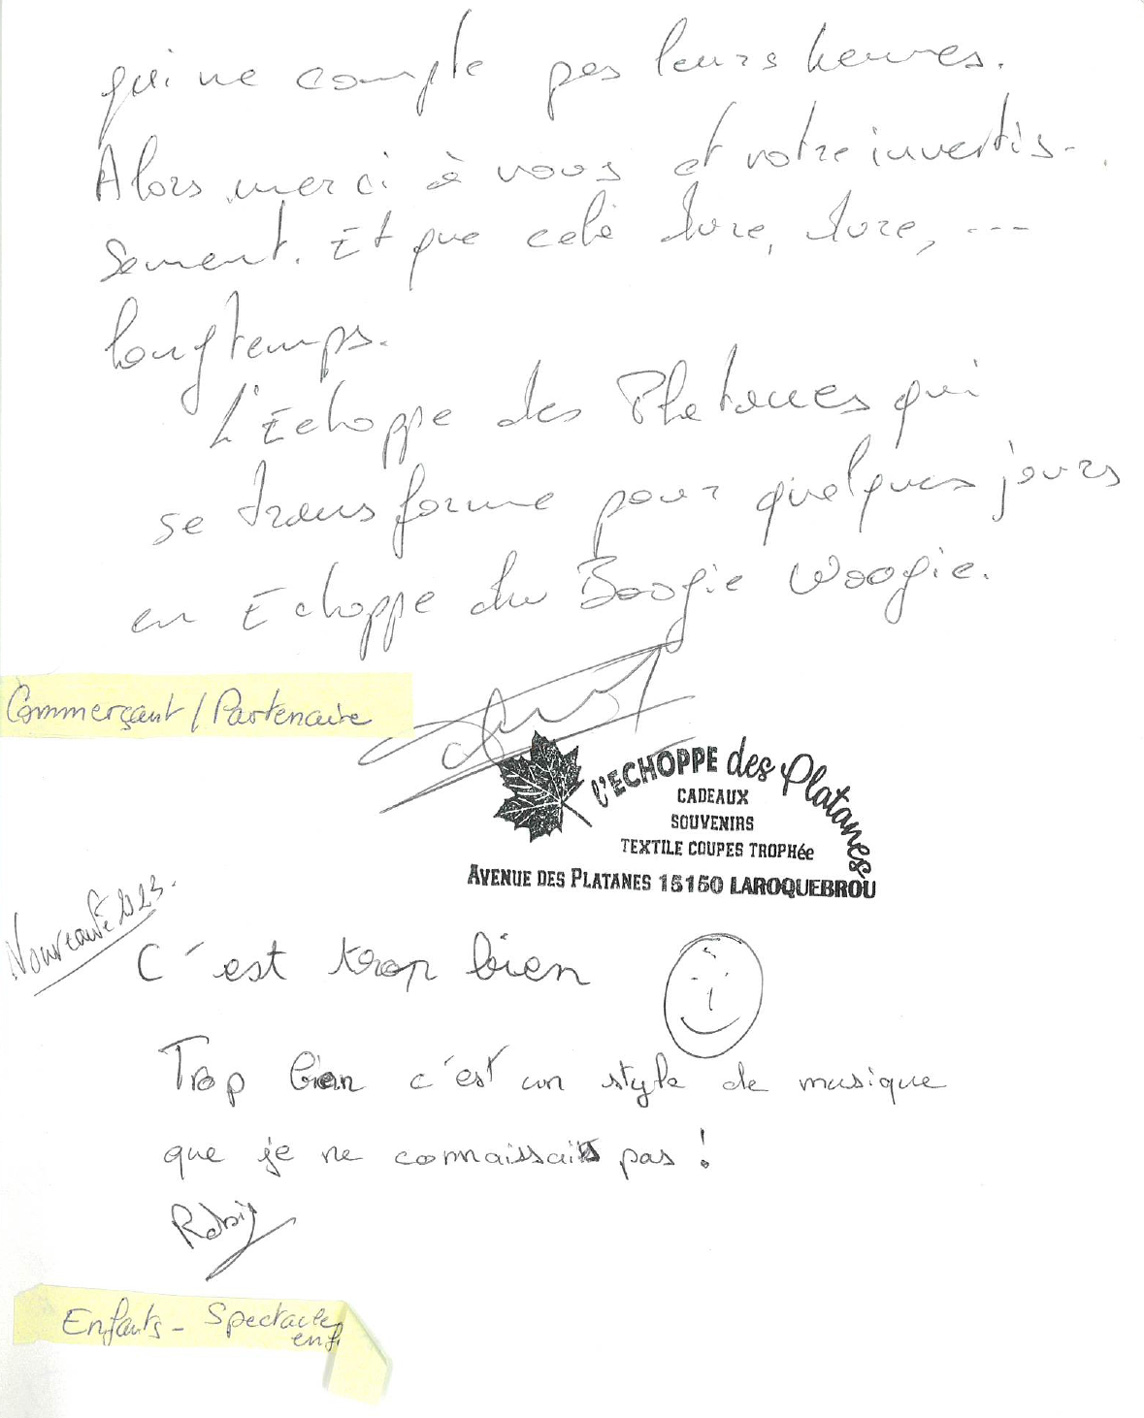 qui ne compte pas leurs heures.
Alors merci à vous et votre invertis-
sement. Et que celà dure, dure, ---
longtemps.
L'Echoppe des Platanes qui
se transforme pour quelques jours
en Echoppe du Boogie Woogie.
Commerçant / Partenaire
L'ECHOPPE des Platanes
CADEAUX
SOUVENIRS
TEXTILE COUPES TROPHée
AVENUE DES PLATANES 15150 LAROQUEBROU
Nouveauté 2023.
C'est trop bien
Trop bien c'est un style de musique
que je ne connaissais pas !
Enfants - Spectacle
enf.